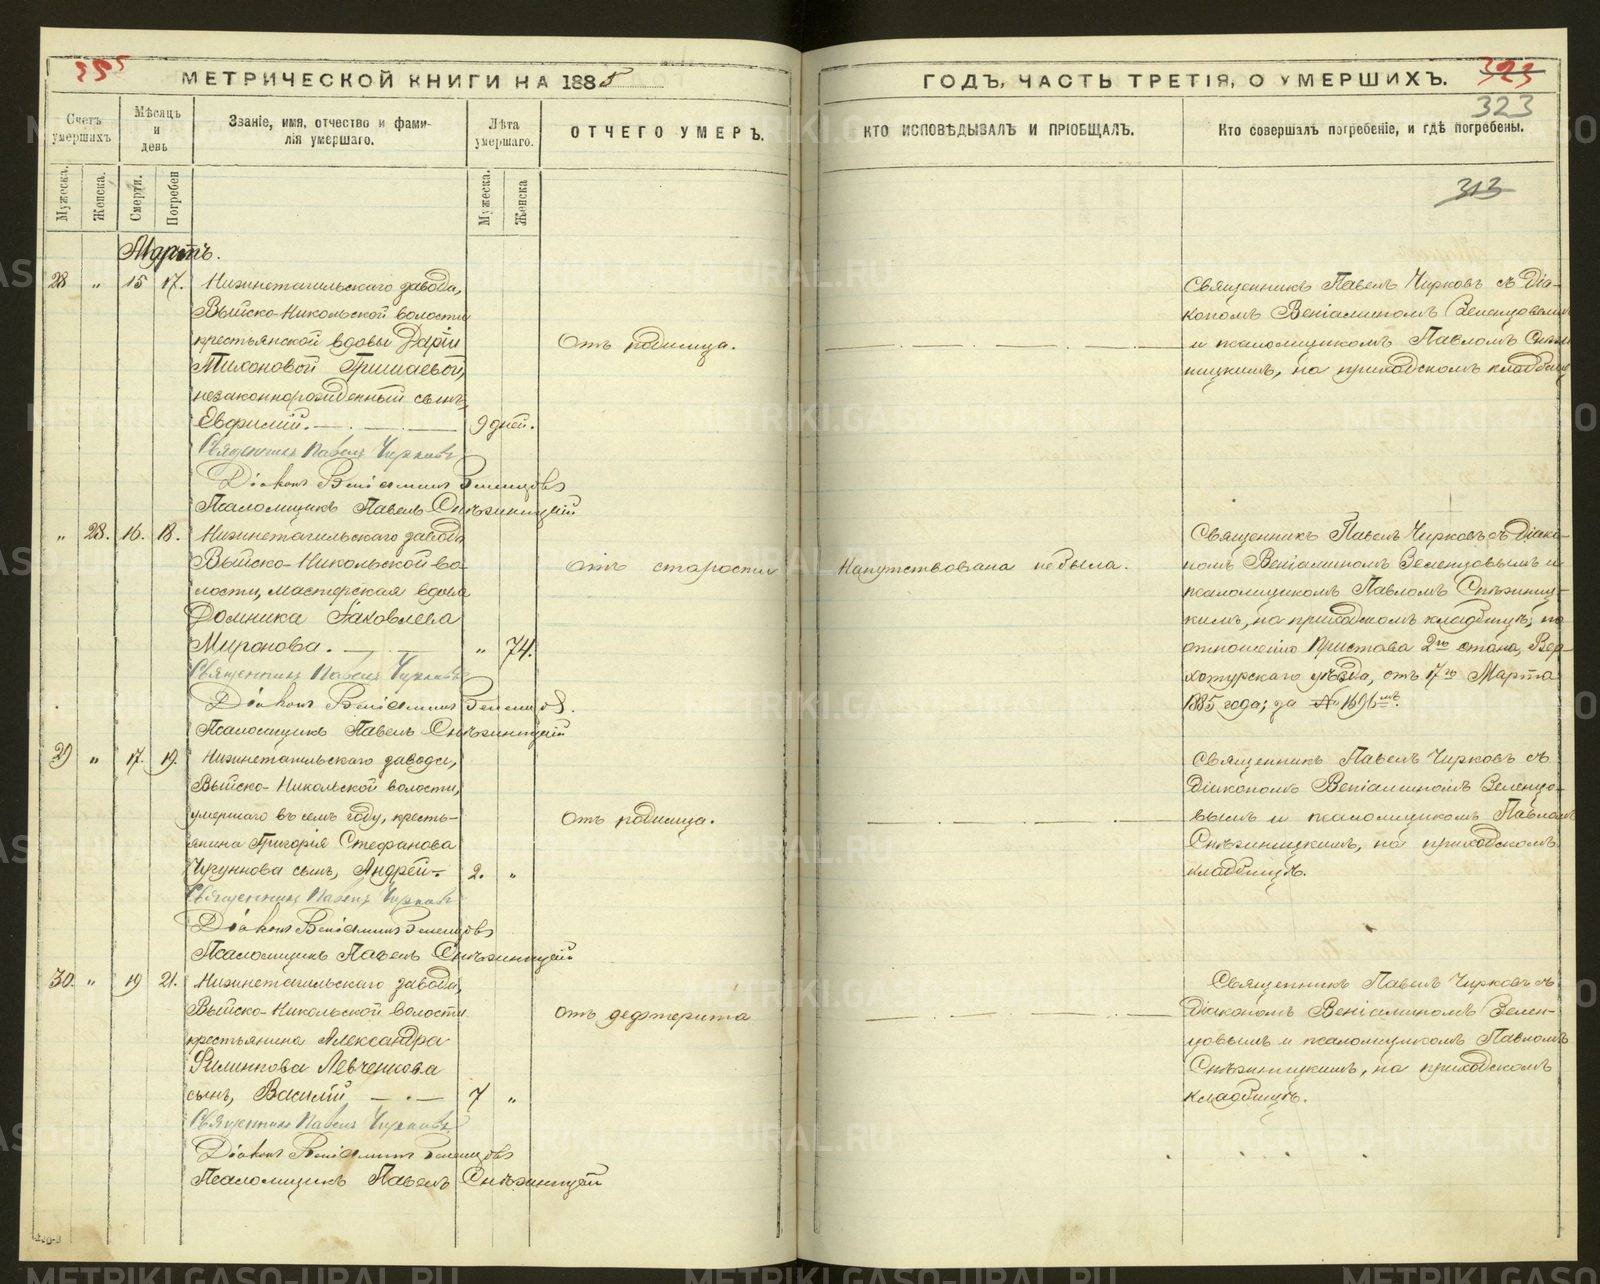 355
МЕТРИЧЕСКОЙ КНИГИ НА 1885
Счетъ умершихъ
Мѣсяцъ и день
Званіе, имя, отчество и фамилія умершаго.
Лѣта умершаго.
ОТЧЕГО УМЕРЪ.
Мужеска.
Женска.
Смерти.
Погребен
Мужеска.
Женска
Мартъ.
28 „ 15 17. Нижнетагильскаго завода,
Выйско-Никольской волости
крестьянской вдовы Даріи
Тихоновой Гришаевой,
незаконнорожденный сынъ,
Евфимій. 9 дней.
Отъ родимца.
Священникъ Павелъ Чирковъ
Діаконъ Веніаминъ Зеленцовъ
Псаломщикъ Павелъ Снѣжницкій
„ 28. 16. 18. Нижнетагильскаго завода
Выйско-Никольской во-
лости, мастерская вдова
Домника Іаковлева
Миронова. „ 74.
отъ старости
Священникъ Павелъ Чирковъ
Діаконъ Веніаминъ Зеленцов.
Псаломщикъ Павелъ Снѣжницкій
29 „ 17. 19. Нижнетагильскаго завода,
Выйско-Никольской волости,
умершаго въ семъ году, кресть-
янина Григорія Стефанова
сынъ, Андрей. 2. „
Отъ родимца.
Священникъ Павелъ Чирковъ
Діаконъ Веніаминъ Зеленцовъ
Псаломщикъ Павелъ Снѣжницкій
30. „ 19 21. Нижнетагильскаго завода,
Выйско-Никольской волости
крестьянина Александра
Филиппова Левченкова
сынъ, Василій 7 „
Отъ дефтерита
Священникъ Павелъ Чирковъ
Діаконъ Веніаминъ Зеленцовъ
Псаломщикъ Павелъ Снѣжницкій
ГОДЪ, ЧАСТЬ ТРЕТІЯ, О УМЕРШИХЪ.
323
323
КТО ИСПОВѢДЫВАЛЪ И ПРІОБЩАЛЪ.
Кто совершалъ погребеніе, и гдѣ погребены.
313
Священникъ Павелъ Чирковъ съ Діа-
кономъ Веніаминомъ Зеленцовымъ
и псаломщикомъ Павломъ Снѣж
ницкимъ, на приходскомъ кладбищѣ
Напутствована не была.
Священникъ Павелъ Чирковъ съ Діако-
номъ Веніаминомъ Зеленцовымъ и
псаломщикомъ Павломъ Снѣжниц-
кимъ, на приходскомъ кладбищѣ, по
отношенію Пристава 2го стана, Вер-
хотурскаго уѣзда, отъ 17го Марта
1885 года, за № 1696мъ.
Священникъ Павелъ Чирковъ съ
Діакономъ Веніаминомъ Зеленцо-
вымъ и псаломщикомъ Павломъ
Снѣжницкимъ, на приходскомъ
кладбищѣ.
Священникъ Павелъ Чирковъ съ
Діакономъ Веніаминомъ Зелен-
цовымъ и псаломщикомъ Павломъ
Снѣжницкимъ, на приходскомъ
кладбищѣ.
METRIKI.GASO-URAL.RU